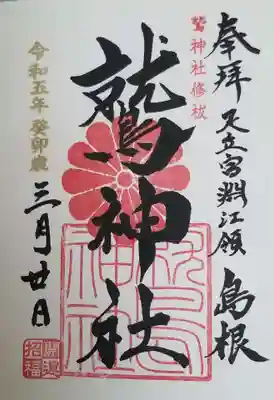 奉拝 足立宮渕江領 島根
鷲神社修祓
鷲神社
令和五年 癸卯歳
三月廿日
開運
招福